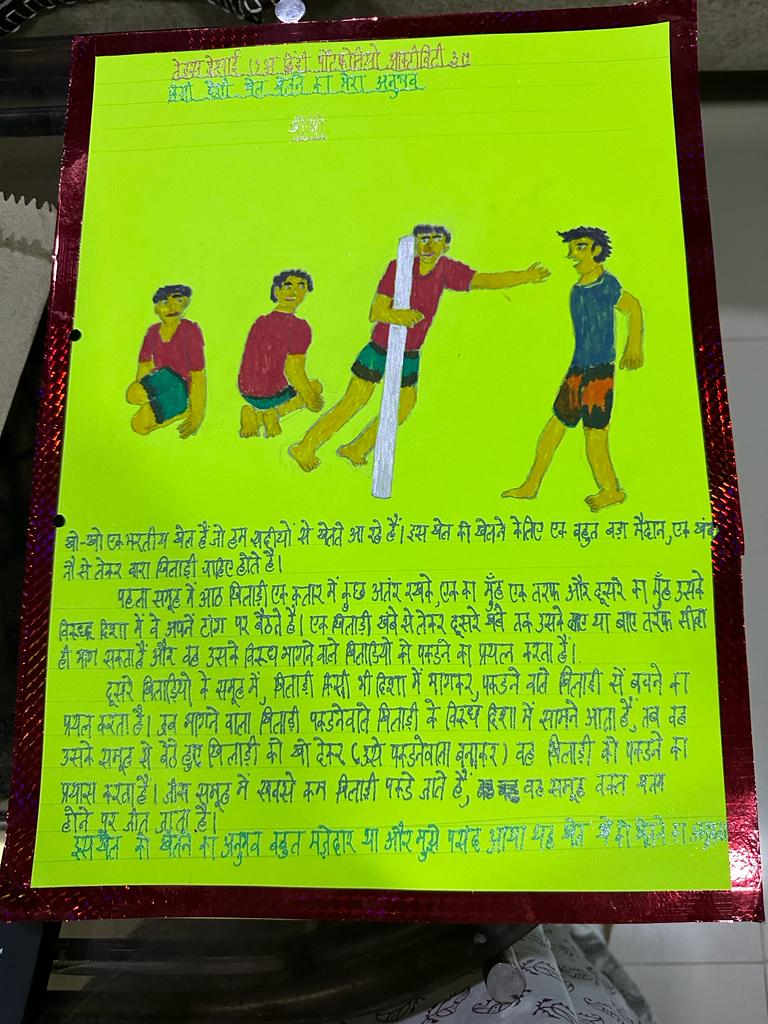 देसाई हिंदी पोर्टफोलियो आक्टीविटी
देशी खेल खेलने का मेरा अनुभव
खो-खो
खो-खो एक भारतीय खेल हैं जो हम सहीयों से खेलते आ रहे हैं। इस खेल को खेलने के लिए एक बहुत बड़ा मैदान, एक खंबा
नौ से लेकर बारा खिलाड़ी चाहिए होते है।
पहला समूह में आठ खिलाड़ी एक कतार में कुछ अतंर रखके, एक का मुँह एक तरफ और दूसरे का मुँह उसके
विरुध्द दिशा में वे अपनें टांग पर बैठते है। एक खिलाड़ी खंबे से लेकर दूसरे खंबे तक उसके बाए या तरफ सीधा
ही भाग सकता हैं और वह उसके विरुध भागने वाले खिलाडियों को पकडने का प्रयत्न करता हैं।
दूसरे खिलाड़ियों के समूह में, खिलाड़ी किसी भी दिशा में भागकर, पकडने वाले खिलाड़ी सें बचने का
प्रयत्न करता है। जब भागने वाला खिलाड़ी पकडनेवाले खिलाड़ी के विरुध दिशा में सामने आता हैं, तब वह
उसके समूह से बैठे हुए खिलाड़ी को खो देकर (उसे पकडनेवाला बनाकर) वह खिलाड़ी को पकडने का
प्रयास करता हैं। जीस समूह में सबसे कम खिलाड़ी पकडे जाते हैं, वह समूह वक्त खतम
होने पर जीत जाता है।
इस खेल को खेलने का अनुभव बहुत मज़ेदार था और मुझे पसंद आया यह खेल